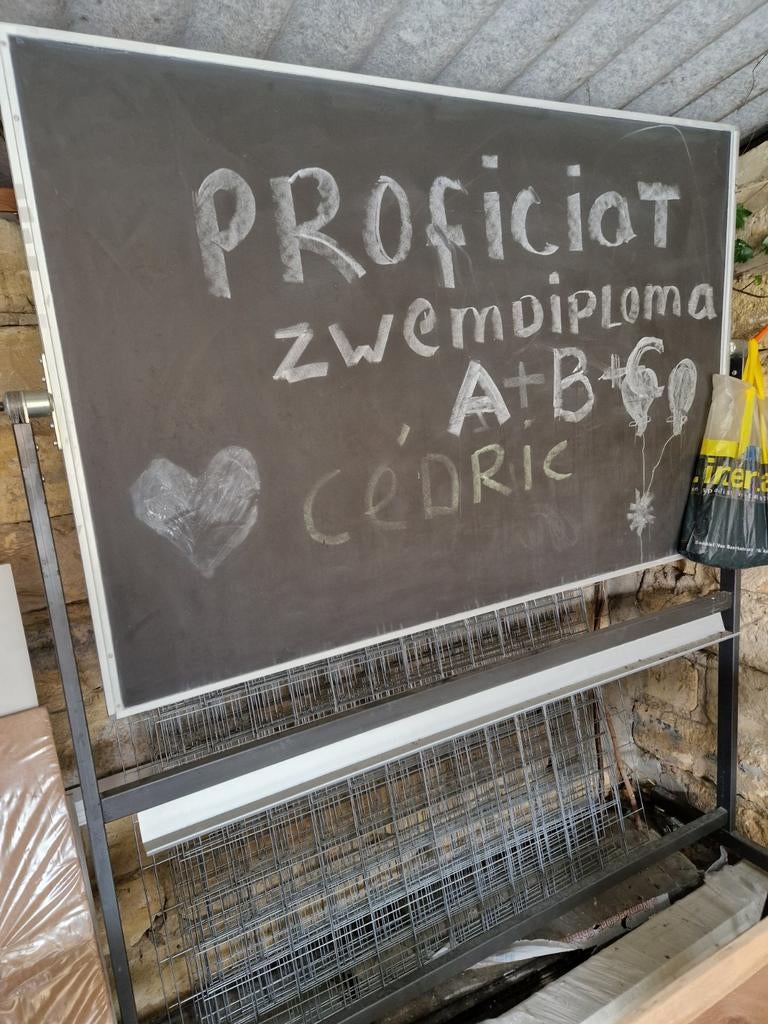 PROficiaT
zwemDiPLOma
A+B+C
CéDRiC